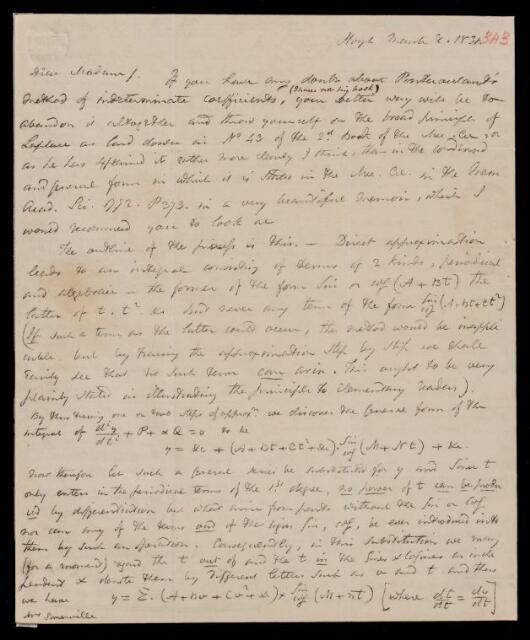 Slough March 8. 1830 343
Dear Madam/. If you have any doubts about Pontecoulant's
(I have not his book)
method of indeterminate coefficients, your better way will be to
abandon it altogether and throw yourself on the broad principle of
Laplace as laid down in No 43 of the 2d Book of the Mec. Cel. or
as he has explained it rather more clearly I think, than in the condensed
and general form in which it is stated in the Mec. Cel. in the Mem
Acad. Sci. 1772. P 373. in a very beautiful memoir, which I
would recommend you to look at
The outline of the process is this. — Direct approximation
leads to an integral consisting of terms of 2 kinds, periodical
and algebraic — the former of the form Sin or cos (A + Bt) the
latter of t. t² &c but never any term of the form sin/cos (A+Bt+Ct²)
(If such a term as the latter could occur, the method would be inappli
cable. but by tracing the approximation step by step we shall
easily see that no such term can arise. This ought to be very
plainly stated in illustrating the principle to elementary readers).
By thus tracing one or two steps of approxn. we discover the general form of the
integral of d²y/dt² + P + α Q = 0 to be
y = &c + (A+Bt+Ct²+&c). sin/cos (M+Nt) + &c.
Now therefore let such a general series be substituted for y and since t
only enters in the periodical terms of the 1st degree, no power of t can be produ
ced by differentiation but what arise from parts without the Sin or Cos,
nor can any of the terms out of the signs Sin, cos, be ever introduced into
them by such an operation. Consequently, in this substitution we may
(for a moment) regard the t out of and the t in the Sines & Cosines as inde
pendent & denote them by different letters such as v and t and thus
we have y = Σ. (A+Bv+Cv²+&c) × sin/cos (M+Nt) [where dt/dt = dv/dt]
Mrs Somerville